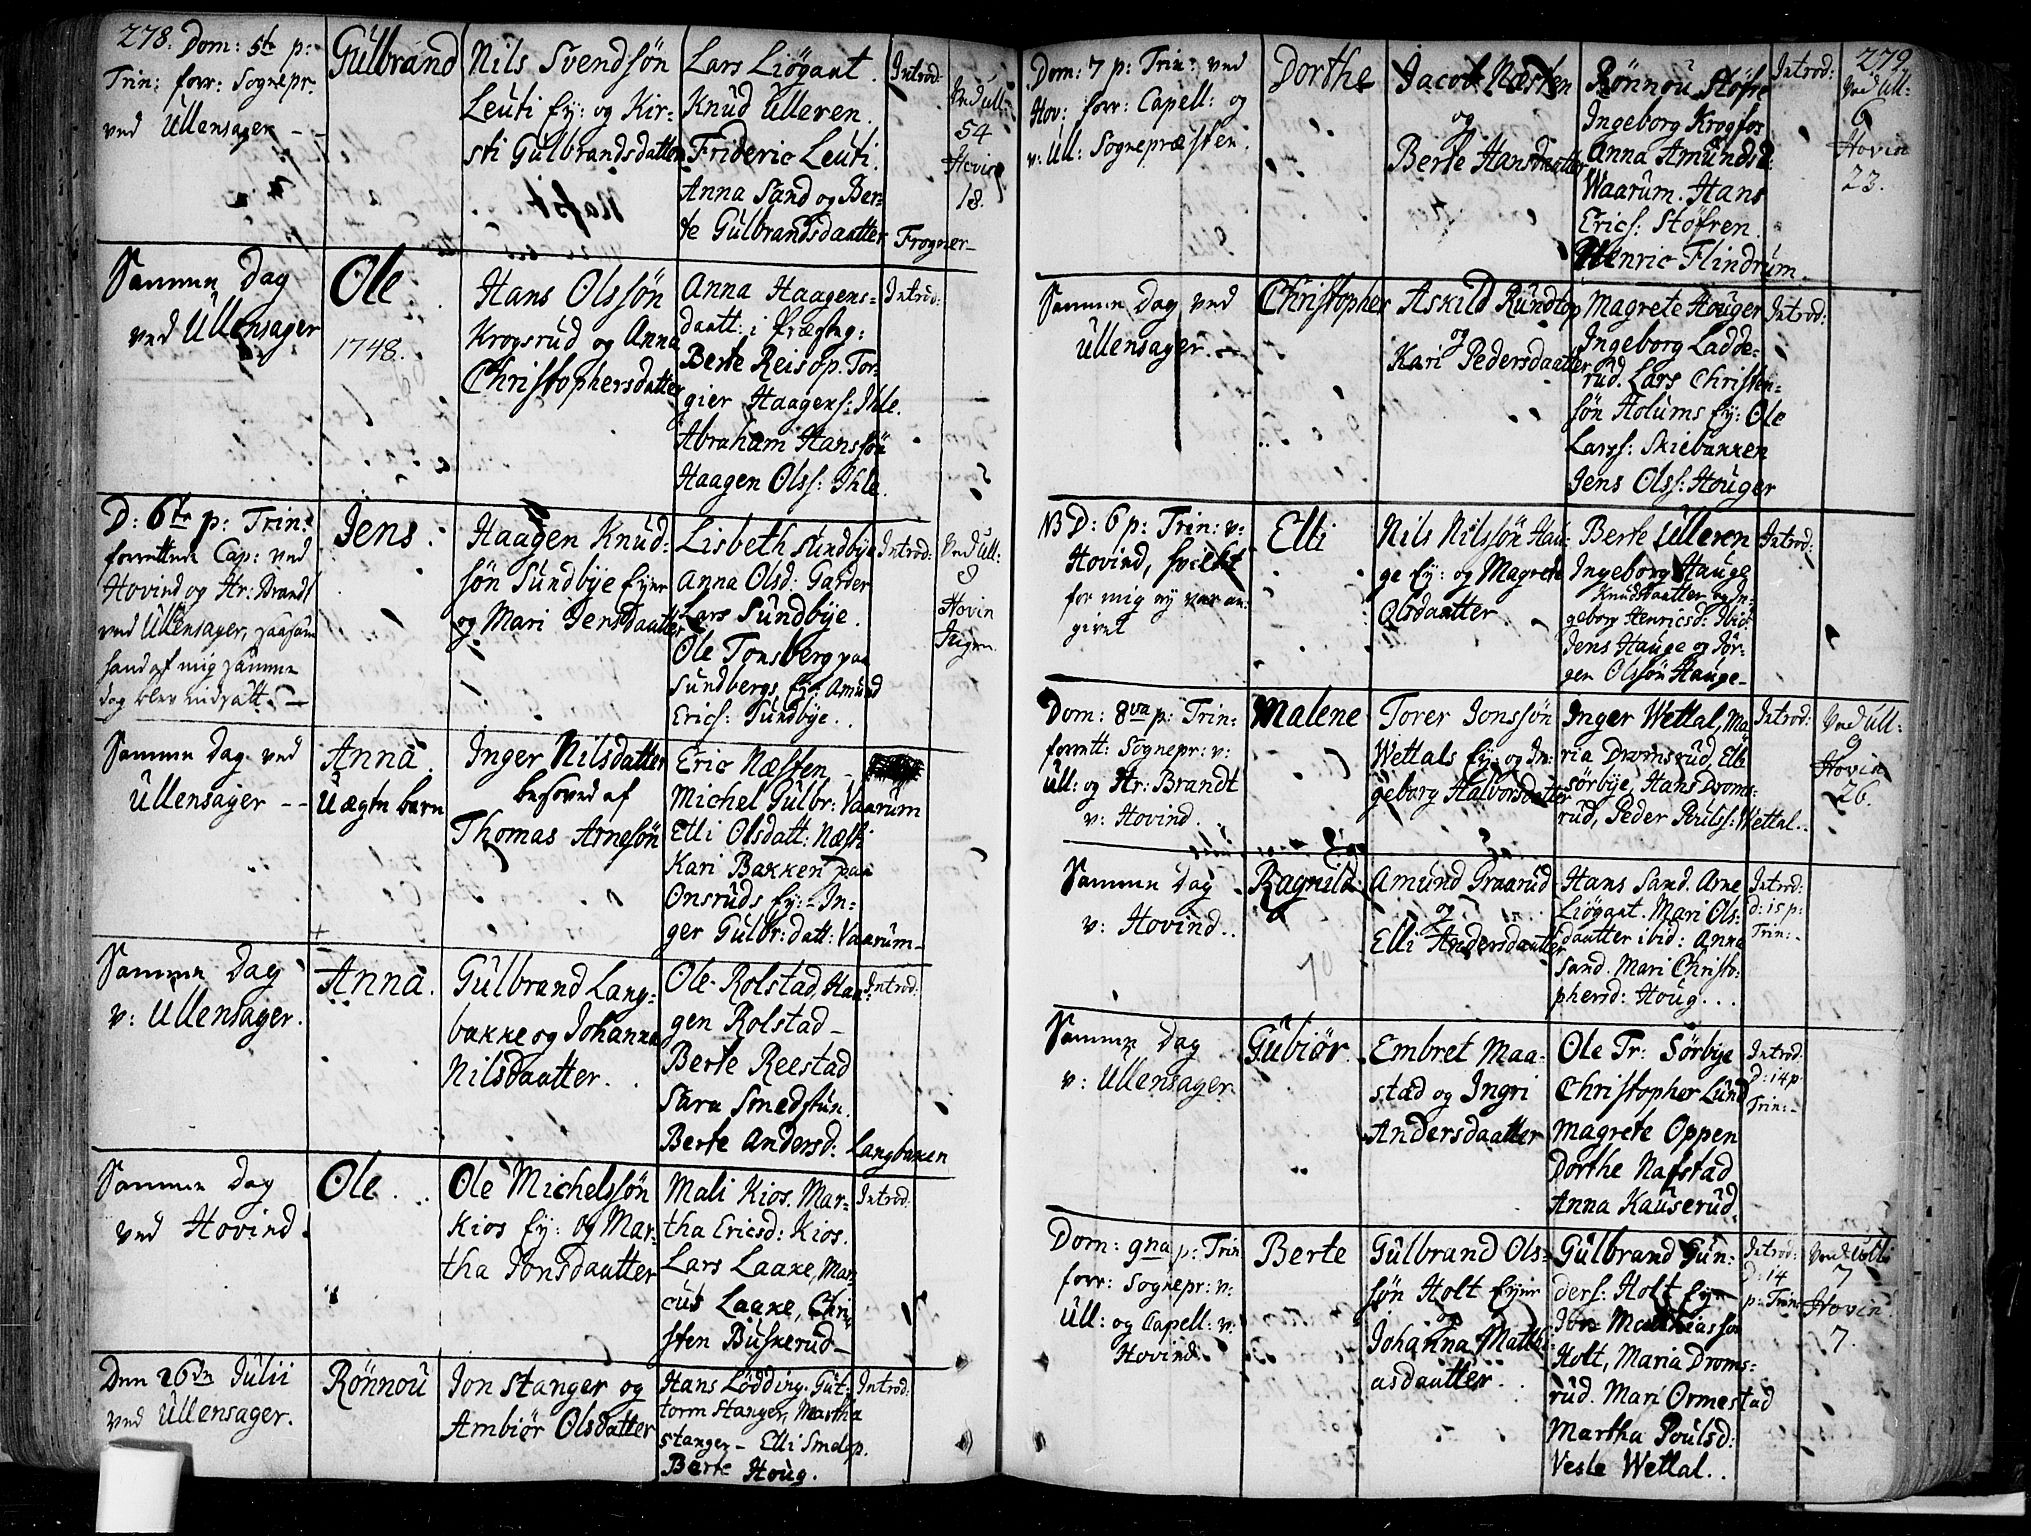 278. Dom: 5te p:
Trin: forr: Sognepr.
ved Ullensager - -
Gulbrand
Nils Svendsön
Leuti Ey: og Kir-
sti Gulbrandsdatter
Lars Liögaat.
Knud Ulleren.
Frideric Leuti.
Anna Sand og Ber-
te Gulbrandsdaatter Frogner-
Introd:
Ved Ull:
54
Hovin
18.
Sammen Dag
ved Ullensager
Ole
1748.
Hans Olssön
Krogsrud og Anna
Christophersdatter
Anna Haagens-
daatt: i Præsteg:
Berte Reisop. Tor-
gier Haagens: Ihle.
Abraham Hanssön
Haagen Olss: Ihle.
Introd:
D: 6te p: Trin:
forrettede Cap: ved
Hovind og Hr: Brandt
ved Ullensager,
af mig samme
dag blev indsatt. -
Jens
Haagen Knud-
sön Sundbye Eyer
og Mari Jensdaatter
Lisbeth Sundbye
Anna Olsd: Garder
Lars Sundbye.
Ole Tonsberg paa
Sundbergs Ey: Amund
Erics: Sundbye.
Introd:
Ved Ull:
8
Hovin
Ingen.
Sammen Dag ved
Ullensager - -
Anna.
Uægte barn
Inger Nilsdatter
besovet af
Thomas Arnesön
Eric Næsten -
Michel Gulbr: Vaarum
Elli Olsdatt: Næsti
Kari Bakken paa
Onsruds Ey: - In-
ger Gulbr: datt: Vaarum-
Sammen Dag
v: Ullensager.
Anna.
Gulbrand Lang-
bakke og Johanna
Nilsdaatter.
Ole Rolstad, Haa-
gen Rolstad -
Berte Reestad
Sara Smedstun.
Berte Andersd: Langbaken
Introd:
Sammen Dag
ved Hovind.
Ole.
Ole Michelssön
Kios Ey: og Mar-
tha Jonsdaatter
Mali Kios. Mar-
tha Ericsd: Kios.
Lars Laake, Mar-
cus Laake, Chri-
sten Buskerud -
Introd:
Den 26de Julii
ved Ullensager.
Rönnou
Jon Stanger og
Ambiör Olsdatter
Hans Lödding. Gut-
torm Stanger, Martha
Stanger - Elli Smdop.
Berte Houg.
Introd:
279.
Dom: 7 p: Trin: ved
Hov: forr: Capell: og
v: Ull: Sognepræsten.
Dorthe
Jacob Næsten
og
Berte Hansdaatter
Rönnou Stöfre
Ingeborg Krogfos
Anna Amundsd:
Waarum. Hans
Erics: Stöfren.
Henric Flindrum.
Introd:
Ved Ull:
6
Hovin
23.
Sammen Dag ved
Ullensager. -
Christopher
Askild Rundtop
og
Kari Pedersdaatter
Magrete Houger
Ingeborg Ladde-
rud. Lars Christen-
sön Holums Ey: Ole
Larss: Skiebakken
Jens Olss: Houger
Introd:
NB D: 6 p: Trin: v:
Hovind, hvilket
for mig ey var an-
givet
Elli
Nils Nilssön Hau-
ge Ey: og Magrete
Olsdaatter.
Berte Ulleren
Ingeborg Hauge
Knudsdaatter og In-
geborg Henricsd: Ibid:
Jens Hauge og Jör-
gen Olssön Hauge-
Introd:
Dom: 8va p: Trin:
forrett: Sognepr: v:
Ull: og Hr: Brandt
v: Hovind.
Malene
Torer Jonssön
Wettals Ey: og In-
geborg Halvorsdaatter
Inger Wettal, Ma-
ria Dromsrud, Elli
Sörbye, Hans Droms-
rud, Peder Pouls: Wettal.
Introd:
Ved Ull:
9
Hovin
26.
Sammen Dag
v: Hovind.
Ragnild.
Amund Graarud
og
Elli Andersdaatter
Hans Sand. Arne
Liögaat. Mari Ols-
daatter ibid: Anna
Sand. Mari Christo-
phersd: Houg...
Introd:
D: 15 p:
Trin:-
Sammen Dag
v: Ullensager.
Gubiör.
Embret Maa-
stad og Ingri
Andersdaatter
Ole Tr: Sörbye
Christopher Lund
Magrete Oppen
Dorthe Nafstad
Anna Kauserud.
Introd:
D: 14 p:
Trin:-
Dom: 9na p: Trin
forr: Sognepr: v:
Ull: og Capell: v:
Hovind.
Berte
Gulbrand Ols-
sön Holt Eyer
og
Johanna Matthi-
asdaatter.
Gulbrand Gun-
ders: Holt Eyer
Jon Matthiasson
Holt, Maria Droms-
rud. Mari Ormestad
Martha Poulsd:
Vesle Wettal..
Introd:
D: 14
p: Trin:
Ved Ull:
7
Hovin
7.